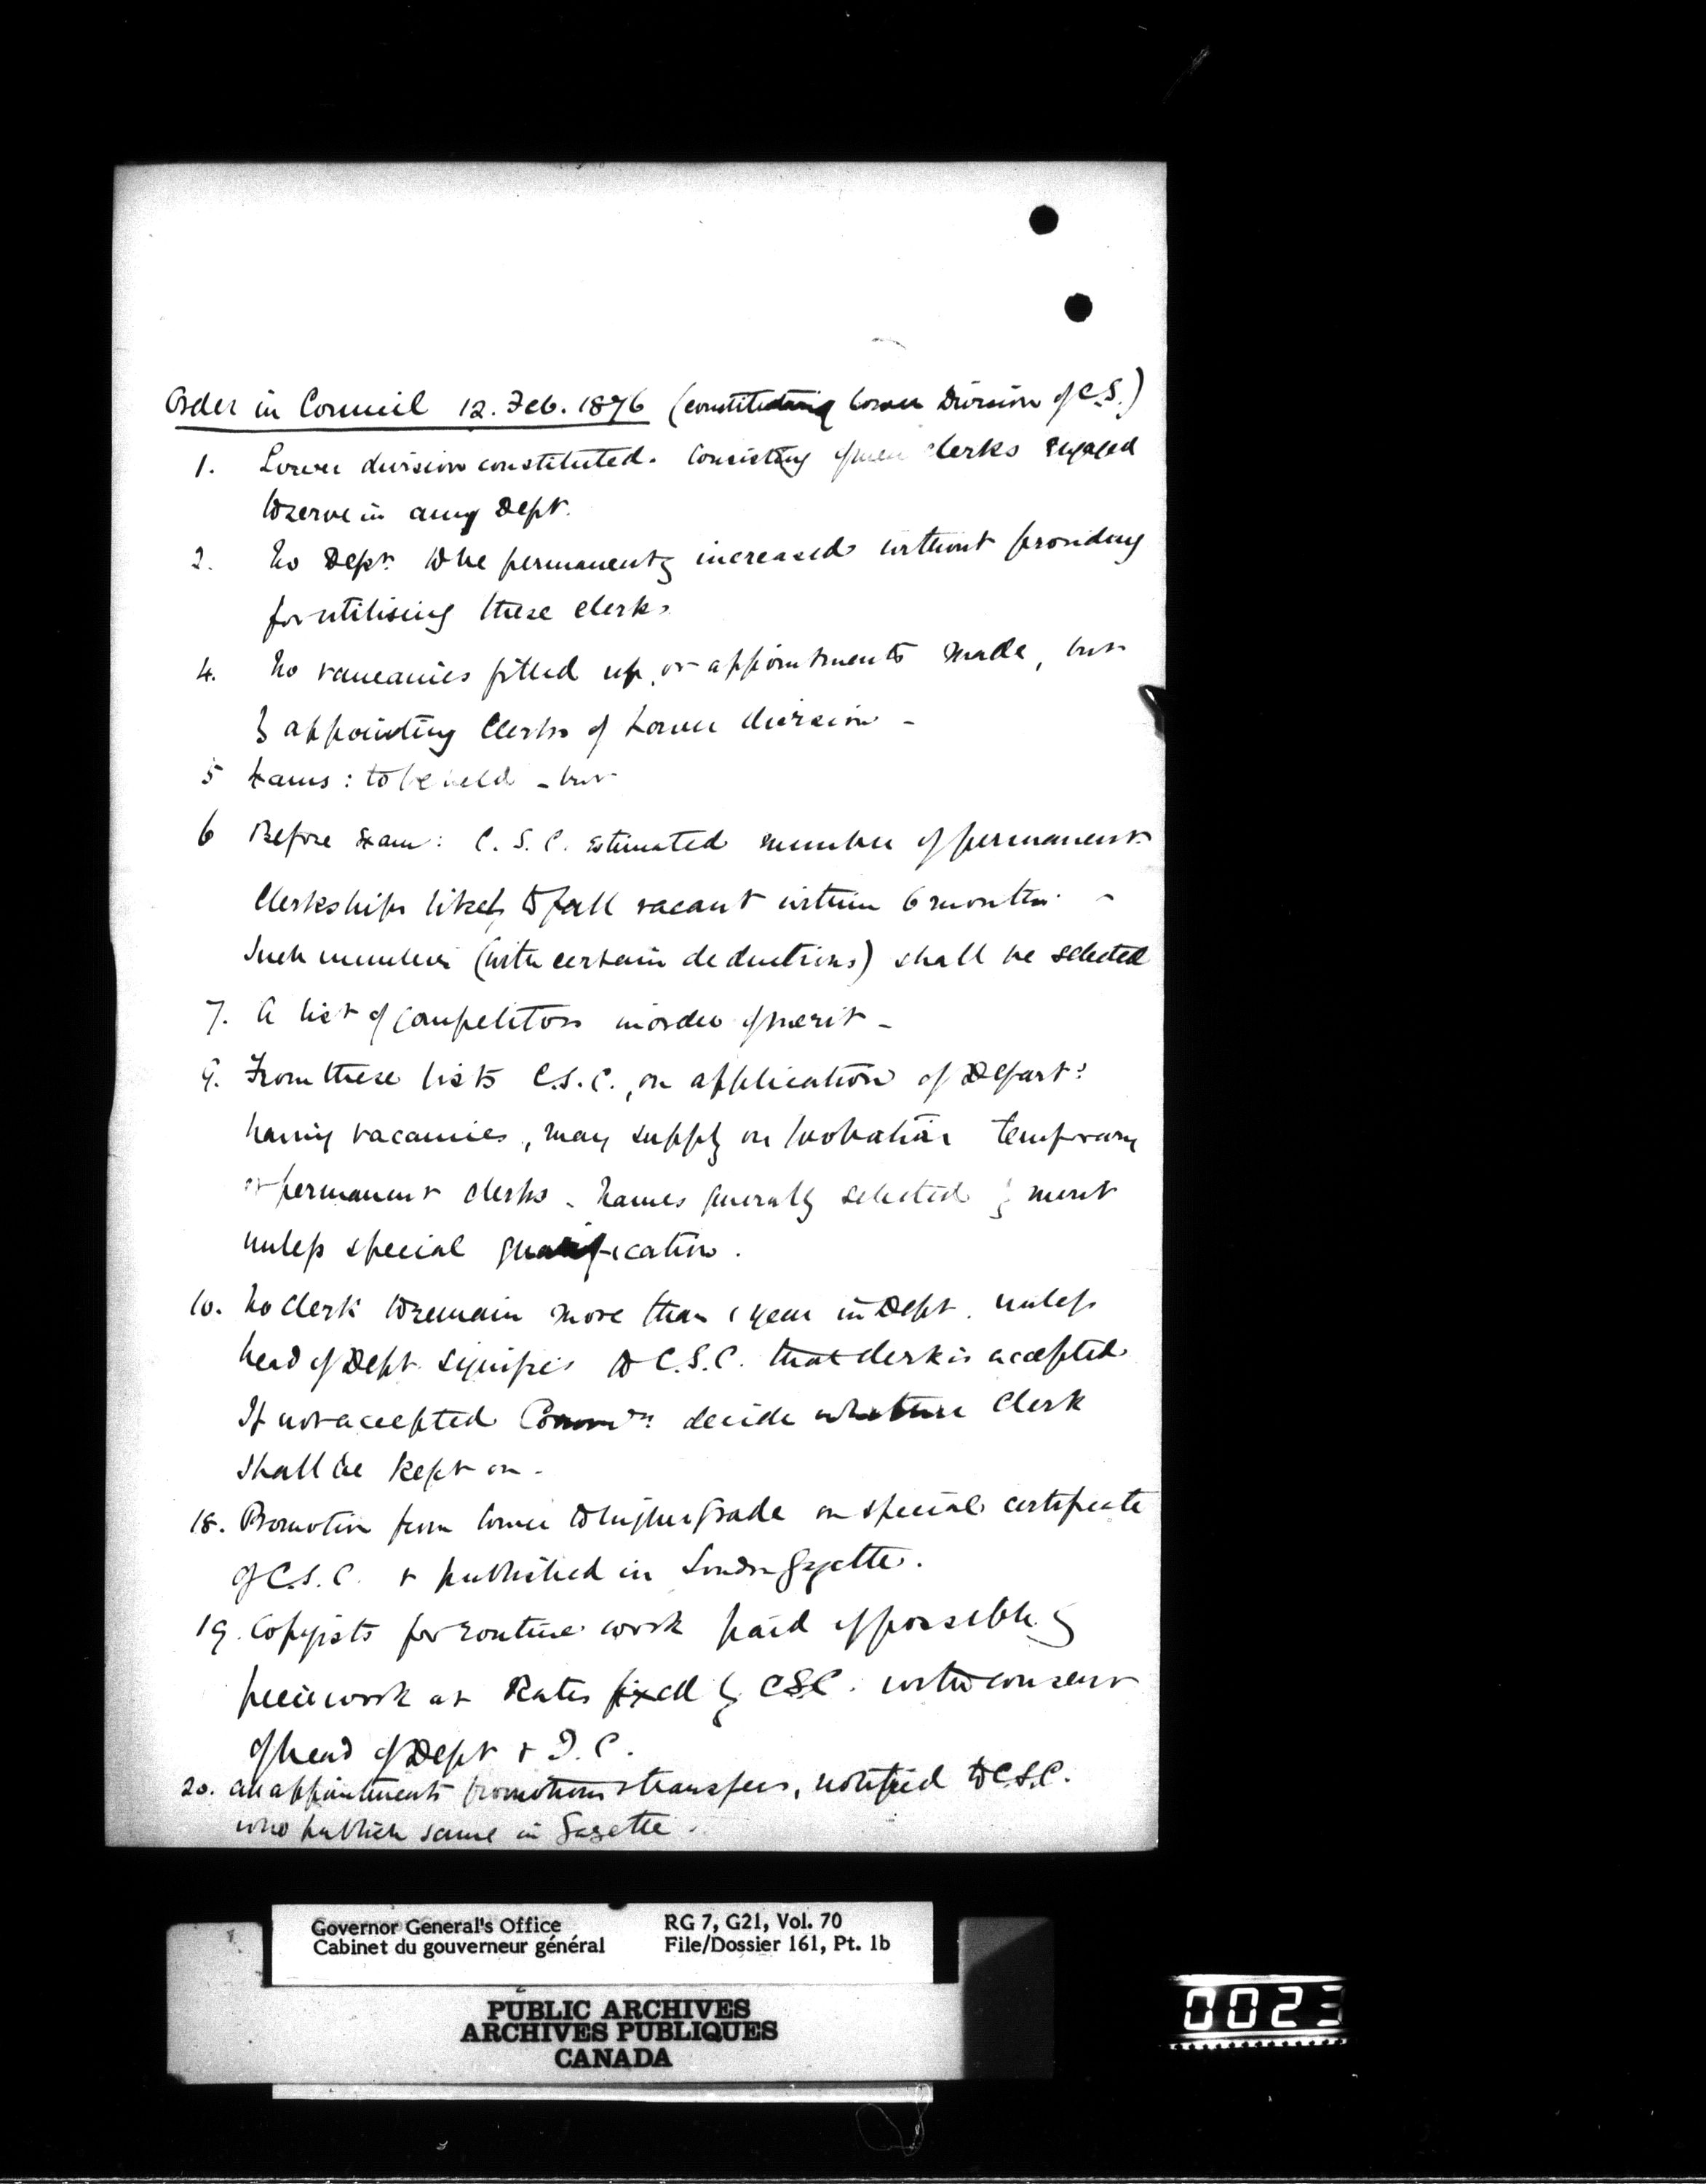 Order in Council 12. Feb. 1876 (constituting Lower Division of C.S.)
1. Lower division constituted. Consisting of men clerks engaged
to serve in any Dept.
2. No Dept. to be permanently increased without providing
for utilising these clerks
4. No vacancies filled up, or appointments made, but
by appointing Clerks of Lower division -
5 Exams: to be held - but
6 Before Exam: C.S.C. estimated number of permanent
Clerkships likely to fall vacant within 6 months -
Such number (with certain deductions) shall be selected
7. A list of Competitors in order of merit -
9. From these lists C.S.C., on application of Depart:
having vacancies, may supply on probation temporary
or permanent clerks - Names generally selected by merit
unless special qualification.
10. No Clerk to remain more than 1 year in Dept. unless
head of Dept. signifies to C.S.C. that clerk is accepted
If not accepted decide whether Clerk
shall be kept on -
18. Promotion from lower to higher grade on special certificate
of C.S.C. & published in London Gazette.
19. Copyists for routine work paid if possible by
piecework at Rates fixed by CSC. with consent
of head of Dept &
20. All appointments promotions & transfers, notified to C.S.C.
who publish same in Gazette.
Governor General's Office RG 7, G21, Vol. 70
Cabinet du gouverneur général File/Dossier 161, Pt. 1b
PUBLIC ARCHIVES
ARCHIVES PUBLIQUES
CANADA
0023